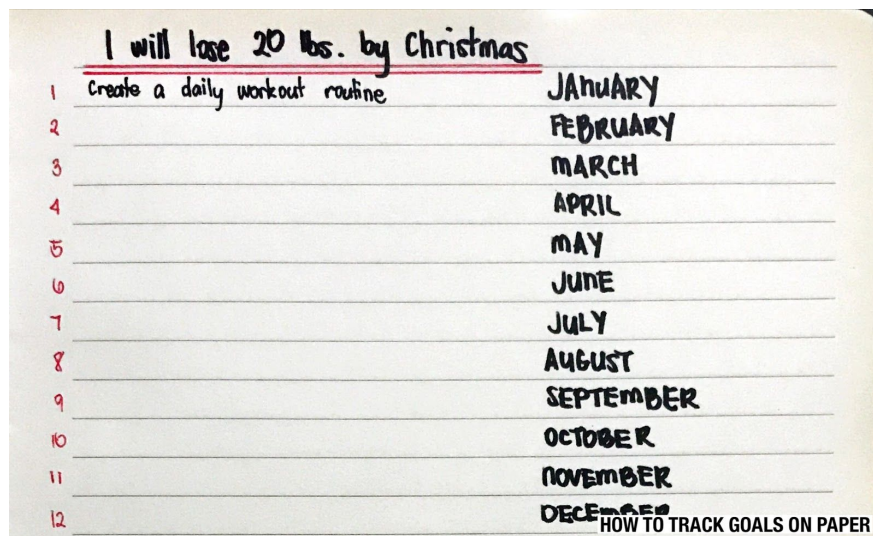 I will lose 20 lbs. by Christmas
1 Create a daily workout routine JANUARY
2 FEBRUARY
3 MARCH
4 APRIL
5 MAY
6 JUNE
7 JULY
8 AUGUST
9 SEPTEMBER
10 OCTOBER
11 NOVEMBER
12 DECEMBER
HOW TO TRACK GOALS ON PAPER